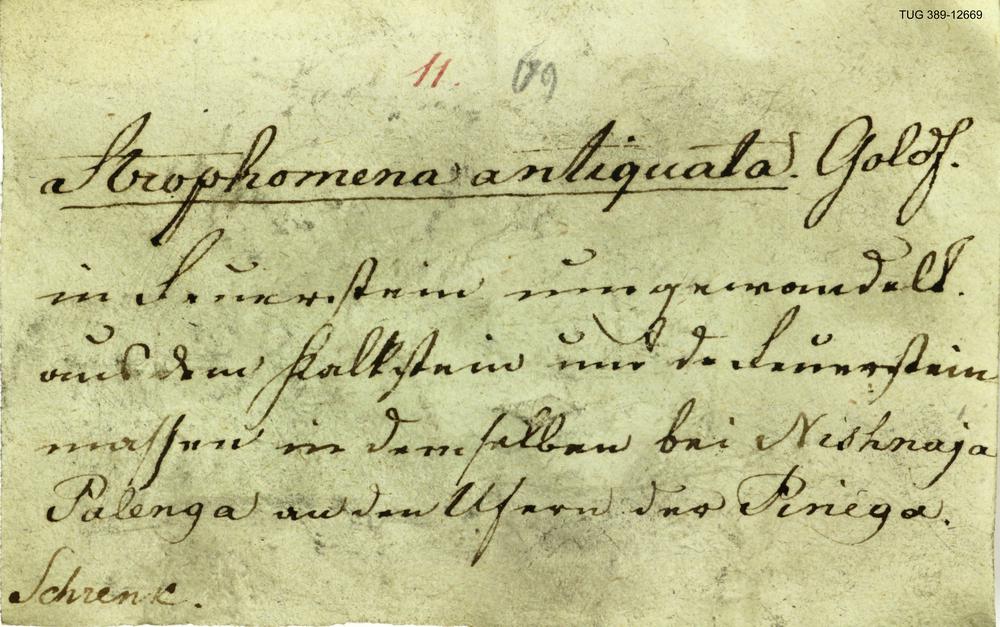 TUG 389-12669
11. 69
Strophomena antiquata. Goldf.
in Feuerstein umgewandelt.
aus dem Kalkstein und de Feuerstein
massen in demselben bei Nishnaja
Palenga an den Ufern der Pinega.
Schrenk.